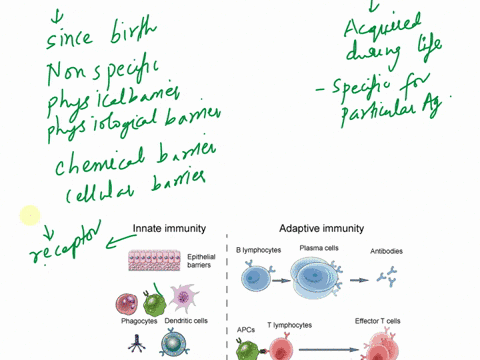 since birth
Nonspecific
physical barrier
physiological barrier
chemical barrier
cellular barrier
receptor
Acquired
during life
- Specific for
particular Ag.
Innate immunity
Epithelial
barriers
Phagocytes
Dendritic cells
Adaptive immunity
B lymphocytes
Plasma cells
Antibodies
APCs
T lymphocytes
Effector T cells